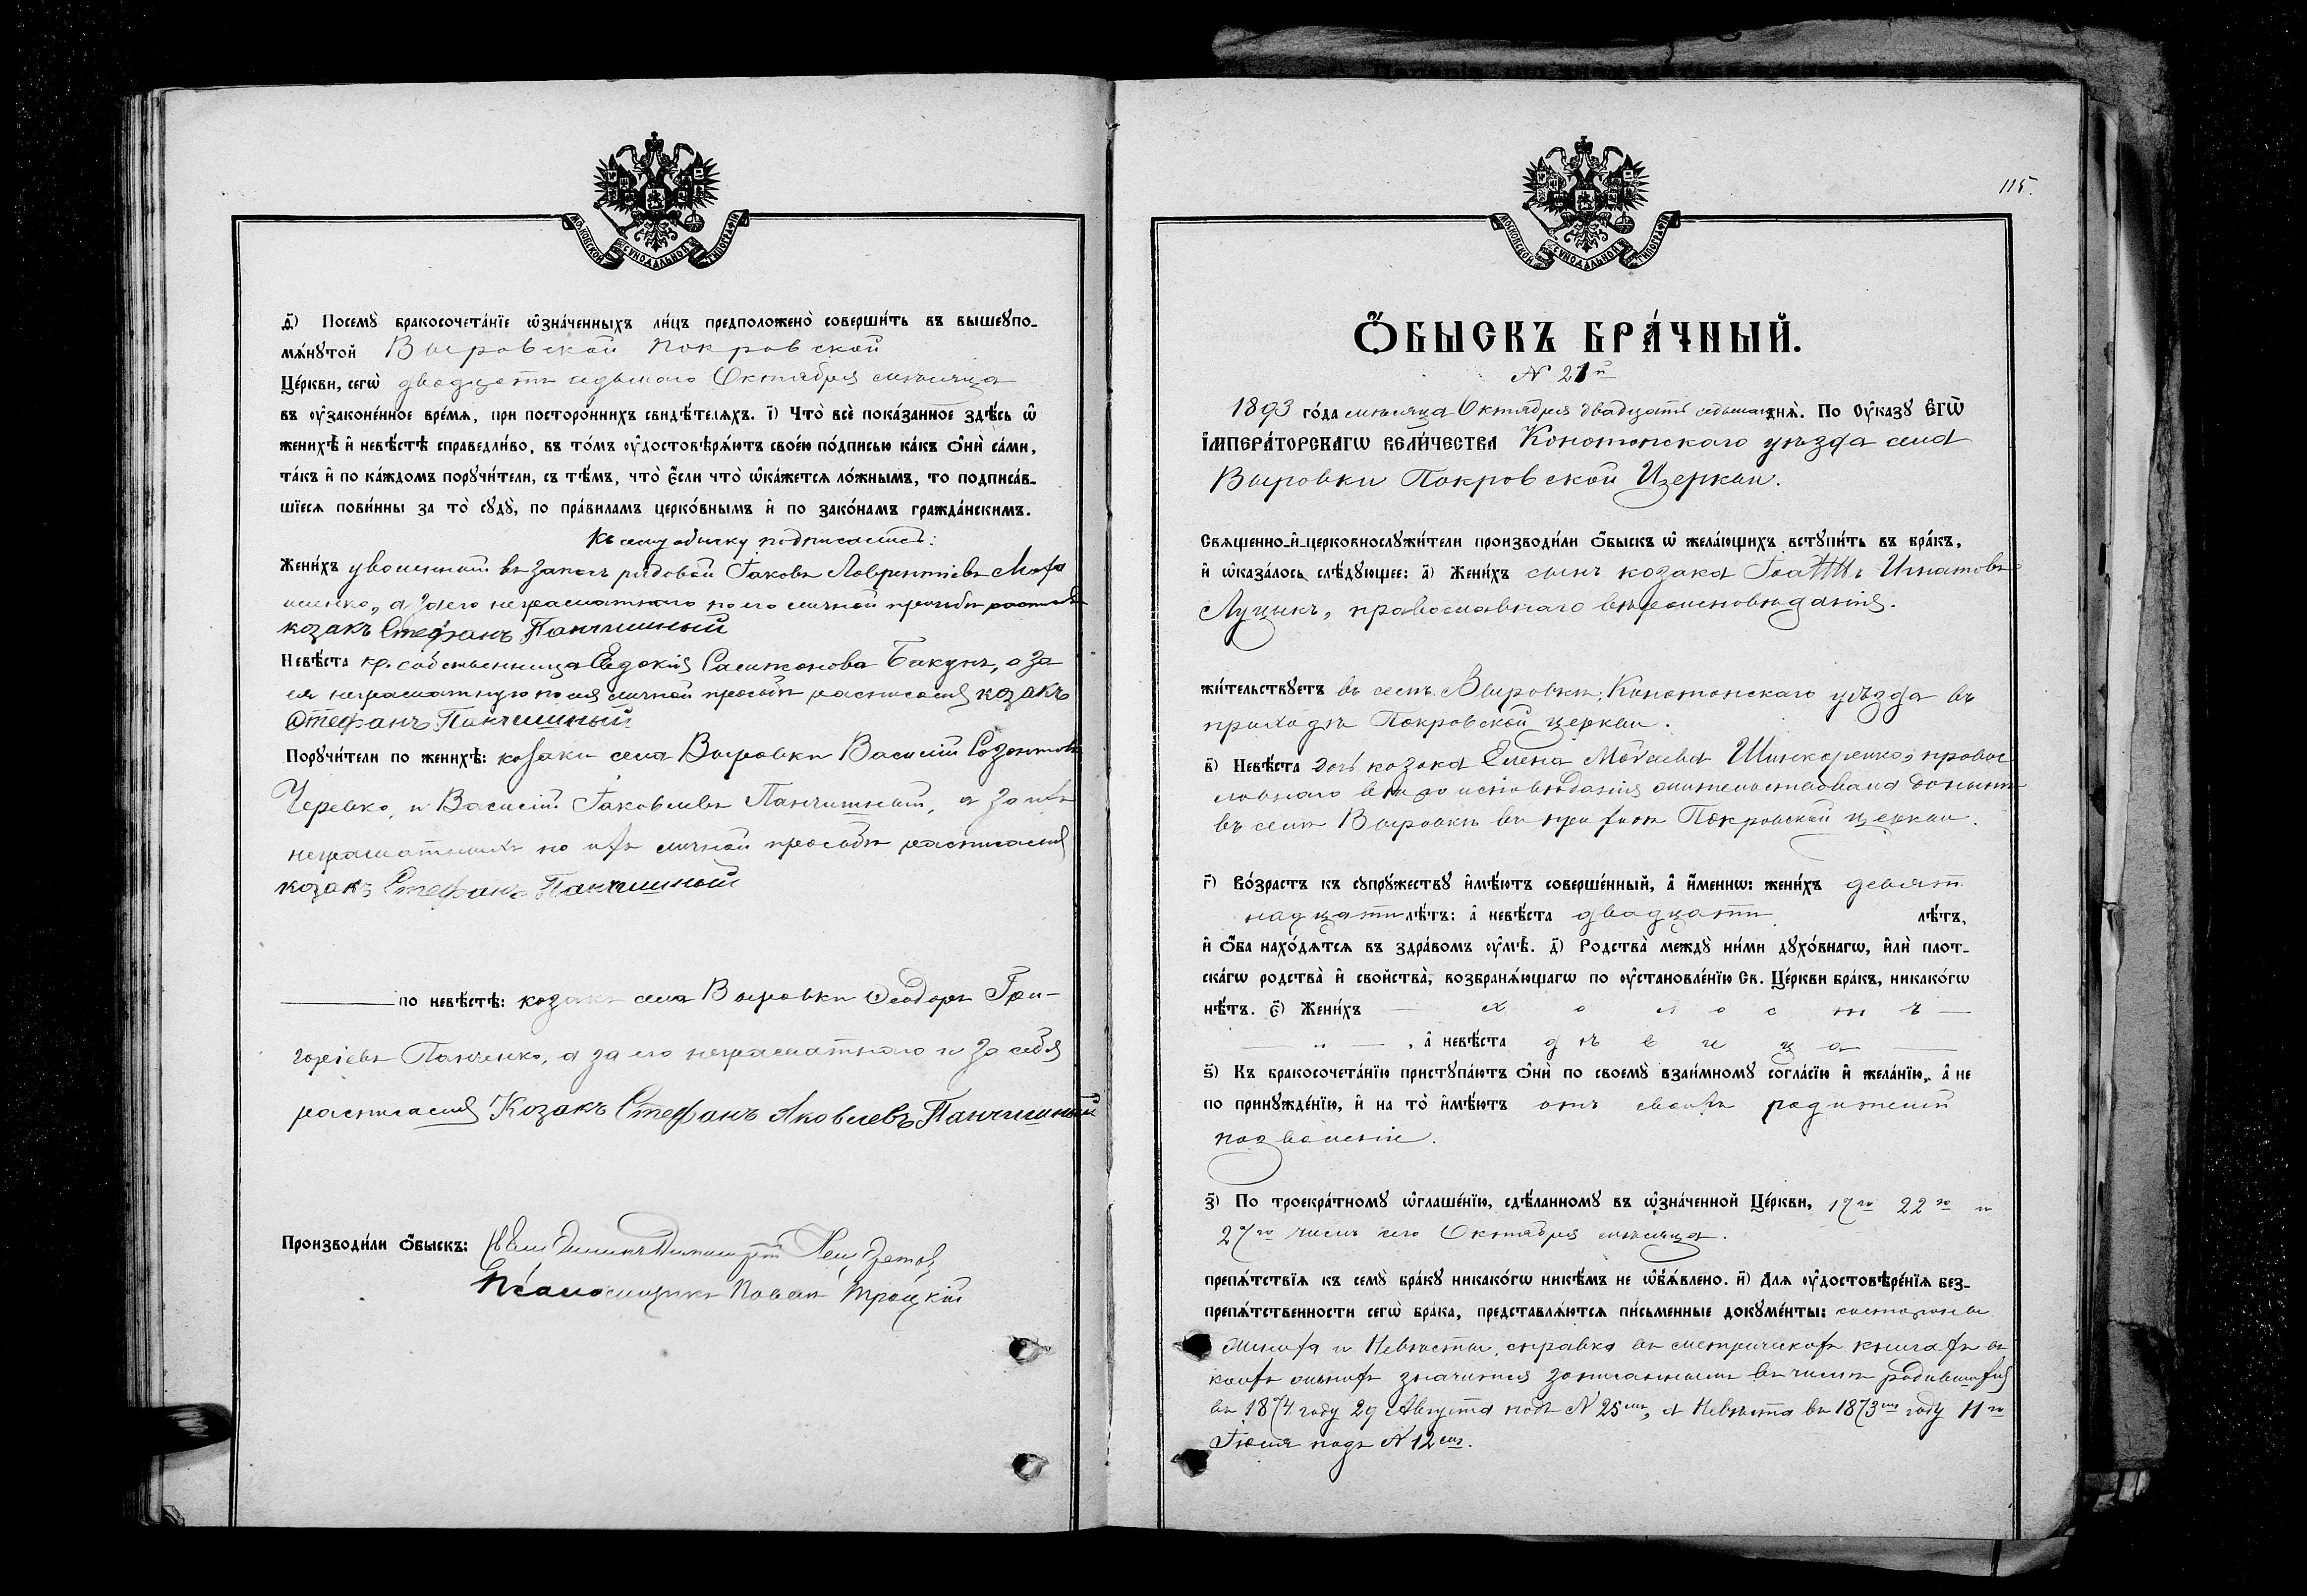 МОСКОВСКОЙ СѴНОДАЛЬНОЙ ТИПОГРАФІИ
д҃) Посемꙋ̀ бракосочета́нїе ѡ҆зна́ченныхъ ли́цъ предположено̀ соверши́ть въ вышеꙋпо-
мѧ́нꙋтой Выровской Покровской
Це́ркви, сегѡ̀ двадцать седьмого Октября мѣсяца
въ ᲂу҆законе́нное вре́мѧ, при посторо́ннихъ свидѣ́телѧхъ. і҃) Что̀ всѐ пока́занное здѣ́сь ѡ҆
женихѣ̀ и҆ невѣ́стѣ справедли́во, въ то́мъ ᲂу҆достовѣрѧ́ютъ свое́ю по́дписью ка́къ ѻ҆нѝ са́ми,
та́къ и҆ по ка́ждомъ порꙋчи́тели, съ тѣ́мъ, что̀ є҆́сли что̀ ѡ҆ка́жетсѧ ло́жнымъ, то подписа́в-
шїесѧ пови́нны за то̀ сꙋдꙋ̀, по пра́виламъ церко́внымъ и҆ по зако́намъ гражда́нскимъ.
Къ сему обыску подписались:
Жени́хъ уволенный въ запасъ рядовой Іаковъ Лаврентіевъ
а за его неграмотнаго по его личной прозьбѣ
козакъ Стефанъ Панчишный
Невѣ́ста кр. собственница Евдокія Самсонова Бакунъ, а за
ея неграмотную по ея личной прозьбѣ расписался козакъ
Стефанъ Панчишный
Порꙋчи́тели по женихѣ̀: козаки села Выровки Василій Созонтовъ
Черевко, и Василій Іаковлевъ Панчишный, а за ихъ
неграмотныхъ по ихъ личной прозьбѣ расписался
козакъ Стефанъ Панчишный
по невѣ́стѣ: козакъ села Выровки Ѳеодоръ Гри-
горіевъ Панченко, а за его неграмотнаго и за себя
расписался Козакъ Стефанъ Яковлевъ Панчишный
Производи́ли ѻ҆́быскъ:
Псаломщикъ Павелъ Троцкій
115.
МОСКОВСКОЙ СѴНОДАЛЬНОЙ ТИПОГРАФІИ
Ѻ҆́БЫСКЪ БРА́ЧНЫЙ.
№ 21й
1893 го́да мѣсяца Октября двадцать седьмаго днѧ̀. По ᲂу҆ка́зꙋ Є҆ГѠ̀
І҆МПЕРА́ТОРСКАГѠ ВЕЛИ́ЧЕСТВА Конотопскаго уѣзда села
Выровки Покровской Церкви.
Свѧщенно-и҆-церковнослꙋжи́тели производи́ли ѻ҆́быскъ ѡ҆ жела́ющихъ встꙋпи́ть въ бра́къ,
и҆ ѡ҆каза́лось слѣ́дꙋющее: а҃) Жени́хъ сынъ козака Игнатовъ
Луцыкъ, православнаго вѣроисповѣданія.
жи́тельствꙋетъ въ селѣ Выровкѣ, Конотопскаго уѣзда въ
приходѣ Покровской церкви.
в҃) Невѣ́ста дочь козака Елена Моѵсеева Шинкаренко, правос
лавнаго вѣроисповѣданія жительствовала донынѣ
въ селѣ Выровкѣ въ приходѣ Покровской церкви.
г҃) Во́зрастъ къ сꙋпрꙋ́жествꙋ и҆мѣ́ютъ соверше́нный, а҆ и҆́менно: жени́хъ девят
надцати лѣ́тъ: а҆ невѣ́ста двадцати лѣ́тъ,
и҆ ѻ҆́ба нахо́дѧтсѧ въ здра́вомъ ᲂу҆мѣ̀. д҃) Родства̀ междꙋ̀ ни́ми дꙋхо́внагѡ, и҆лѝ плот-
ска́гѡ родства̀ и҆ свойства̀, возбранѧ́ющагѡ по ᲂу҆становле́нїю Св. Це́ркви бра́къ, никако́гѡ
нѣ́тъ. є҃) Жени́хъ — холостъ —
— „ — , а҆ невѣ́ста дѣвица —
ѕ҃) Къ бракосочета́нїю пристꙋпа́ютъ ѻ҆нѝ по своемꙋ̀ взаи́мномꙋ согла́сїю и҆ жела́нїю, а҆ не
по принꙋжде́нїю, и҆ на то̀ и҆мѣ́ютъ отъ своихъ родителей
позволеніе.
з҃) По троекра́тномꙋ ѡ҆глаше́нїю, сдѣ́ланномꙋ въ ѡ҆зна́ченной Це́ркви, 17го 22го и
27го числъ сего Октября мѣсяца.
препѧ́тствїѧ къ семꙋ̀ бра́кꙋ никако́гѡ никѣ́мъ не ѡ҆б̾ѧ́влено. и҃) Длѧ ᲂу҆достовѣре́нїѧ без-
препѧ́тственности сегѡ̀ бра́ка, представлѧ́ютсѧ пи́сьменные докꙋме́нты: состороны
Жениха и Невѣсты, справка въ метрическихъ книгахъ въ
коихъ женихъ значится записаннымъ въ числѣ родившихся
въ 1874 году 29 Августа подъ № 25мъ, а Невѣста въ 1873мъ году 11го
Іюня подъ № 12мъ.